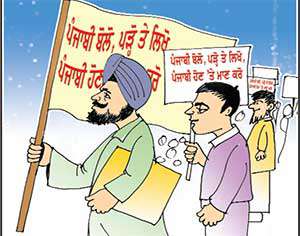 ਪੰਜਾਬੀ ਬੋਲੋ, ਪੜ੍ਹੋ ਤੇ ਲਿਖੋ
ਪੰਜਾਬੀ ਹੋਣ ਕਰੋ
ਪੰਜਾਬੀ ਬੋਲੋ, ਪੜ੍ਹੋ ਤੇ ਲਿਖੋ,
ਪੰਜਾਬੀ ਹੋਣ 'ਤੇ ਮਾਣ ਕਰੋ